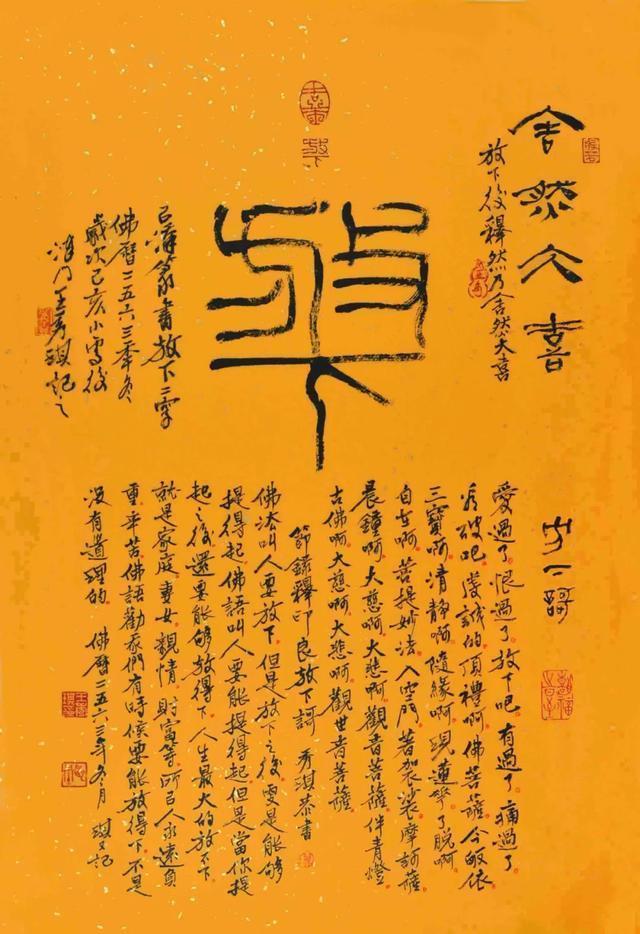 舍然大喜
放下後釋然乃舍然大喜
放下
篆書放下二字
佛曆二五六三年冬
歲次己亥小雪後
王秀琪記之
愛過了恨過了放下吧有過了痛過了
看破吧虔誠的頂禮啊佛菩薩今皈依
三寶啊清靜啊隨緣啊現蓮華了脫啊
自在啊菩提妙法入空門著袈裟摩訶薩
晨鐘啊大慈啊大悲啊觀音菩薩伴青燈
古佛啊大慈啊大悲啊觀世音菩薩
節錄釋印良放下詞 秀琪恭書
佛法叫人要放下但是放下之後更是能够
提得起佛語叫人要能提得起但是當你提
起之後還要能够放得下人生最大的放不下
就是家庭妻女親情財富等所已人永遠負
重辛苦佛語勸我們有時候要能放得下不是
沒有道理的 佛曆二五六三年冬月 琪又記